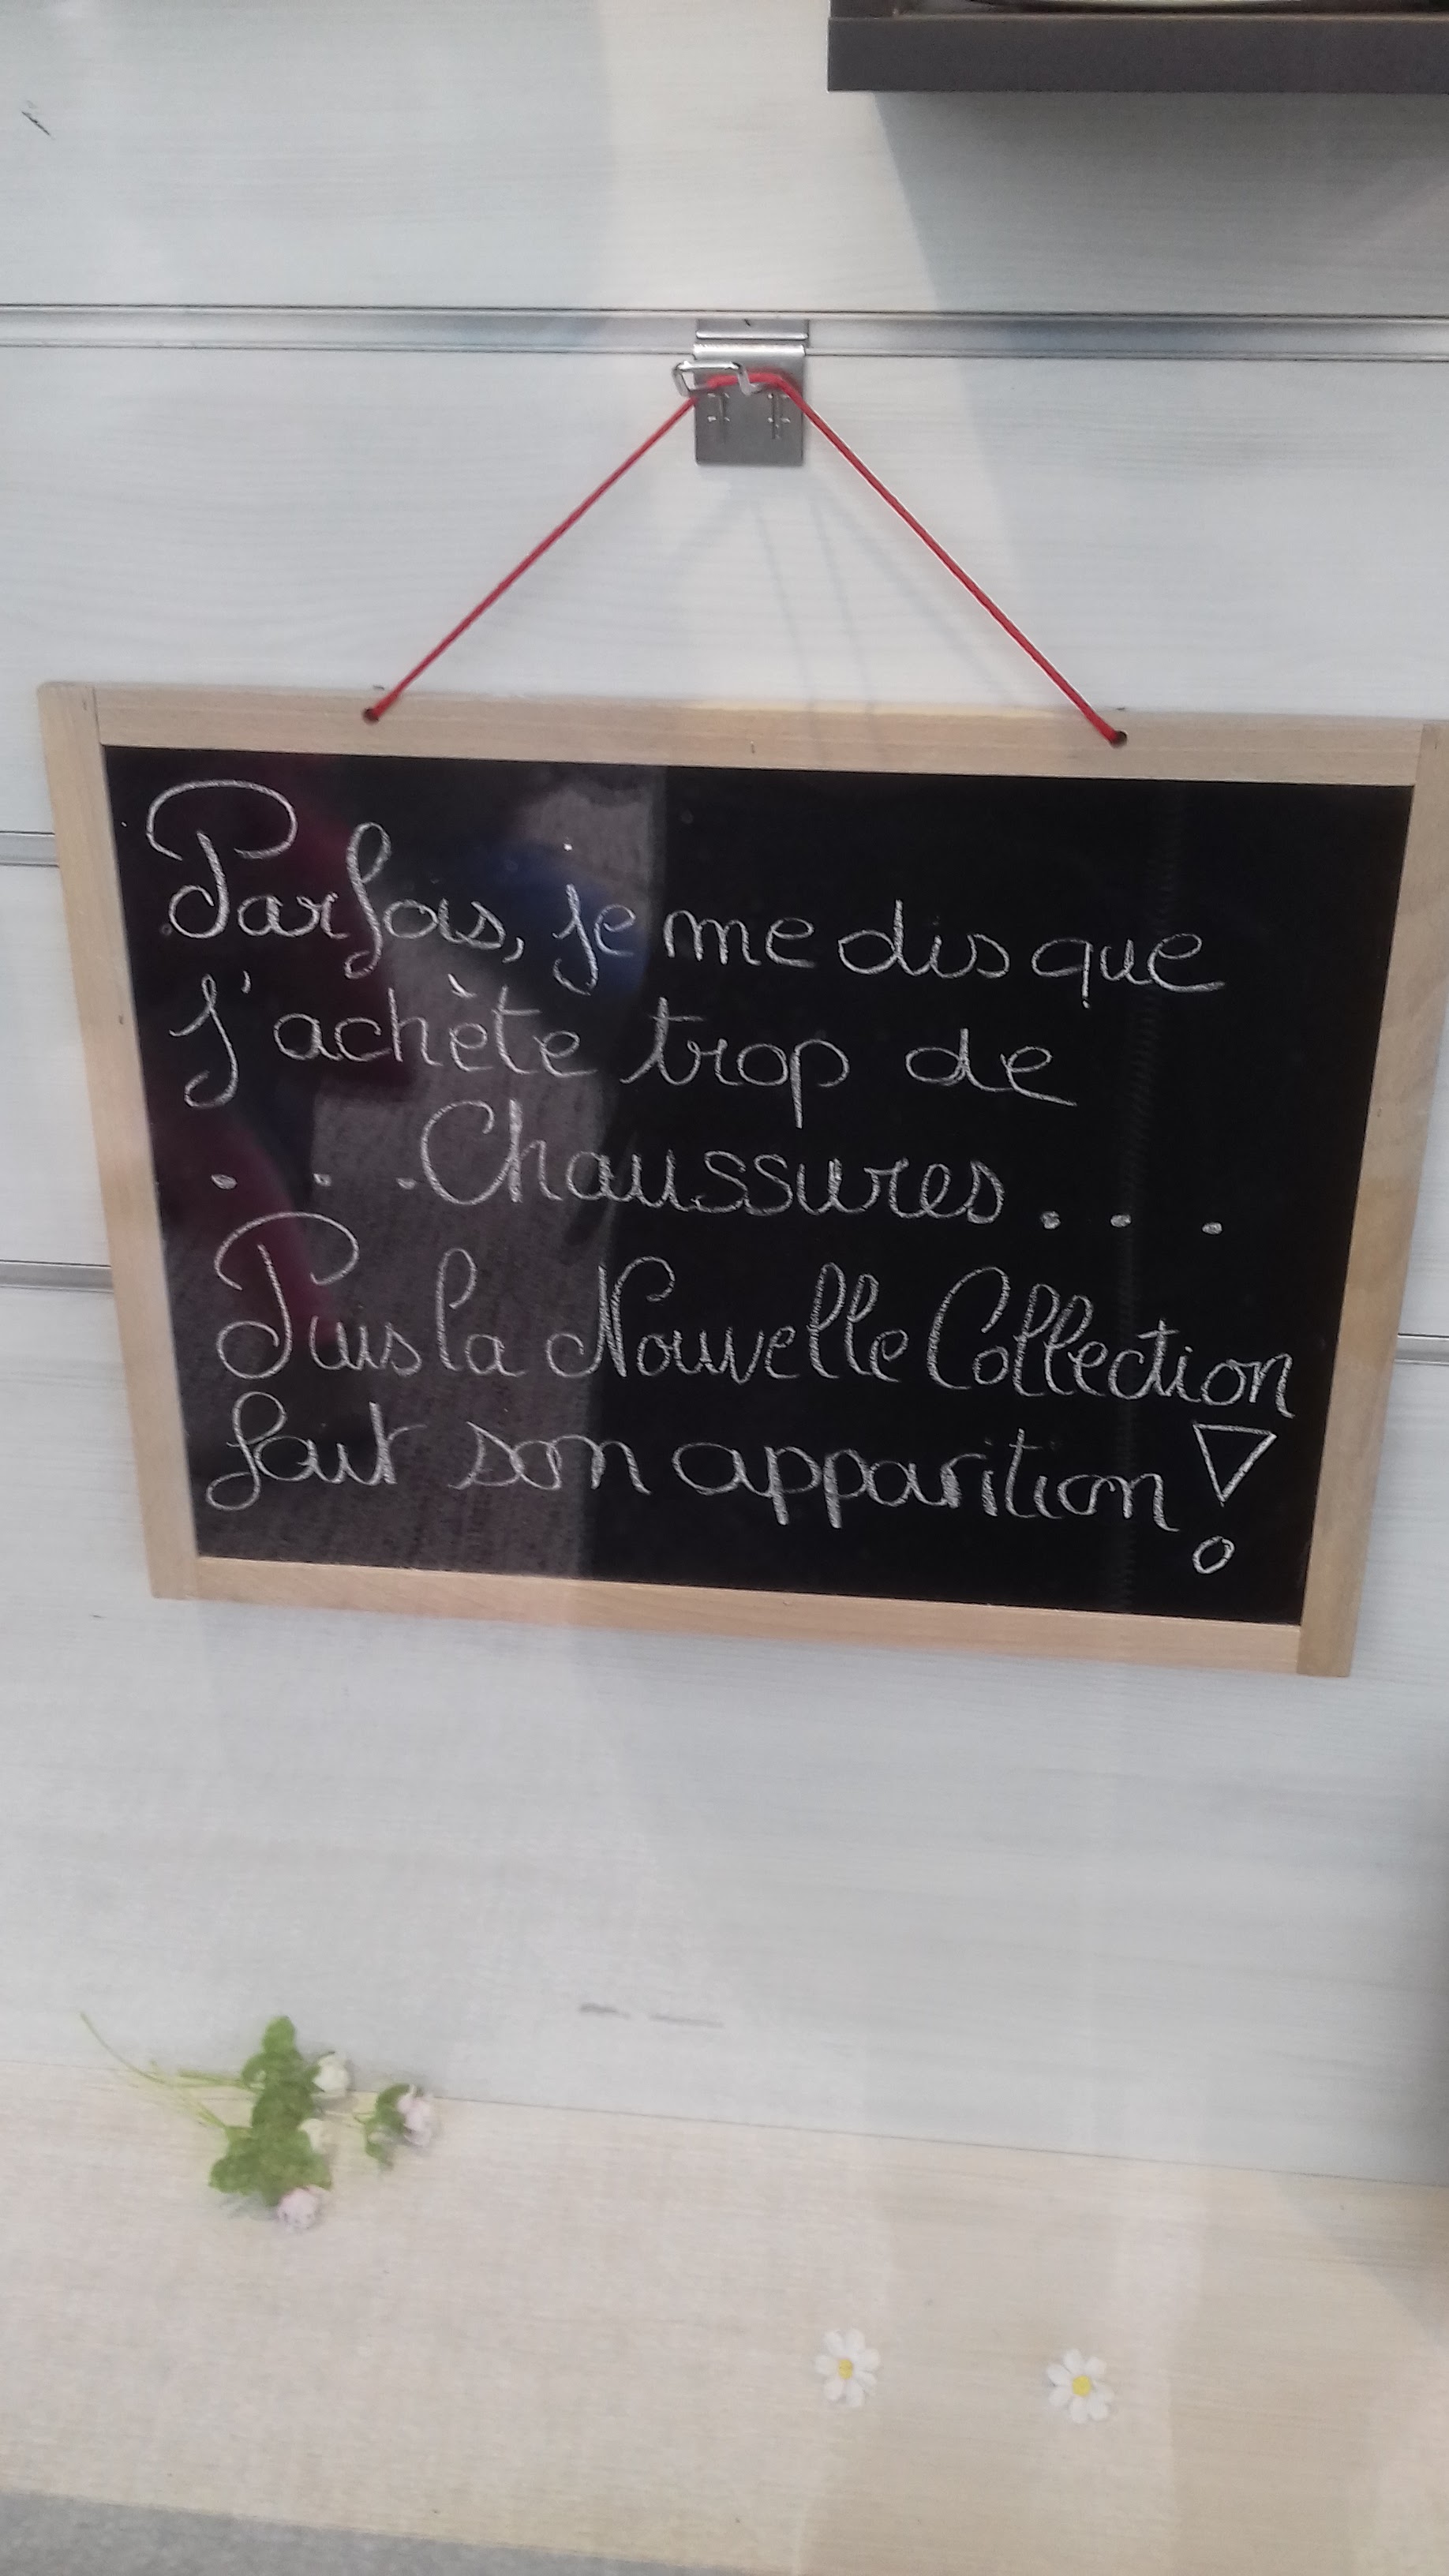 Parfois, je me dis que
j'achète trop de
...Chaussures...
Puis la Nouvelle Collection
fait son apparition!